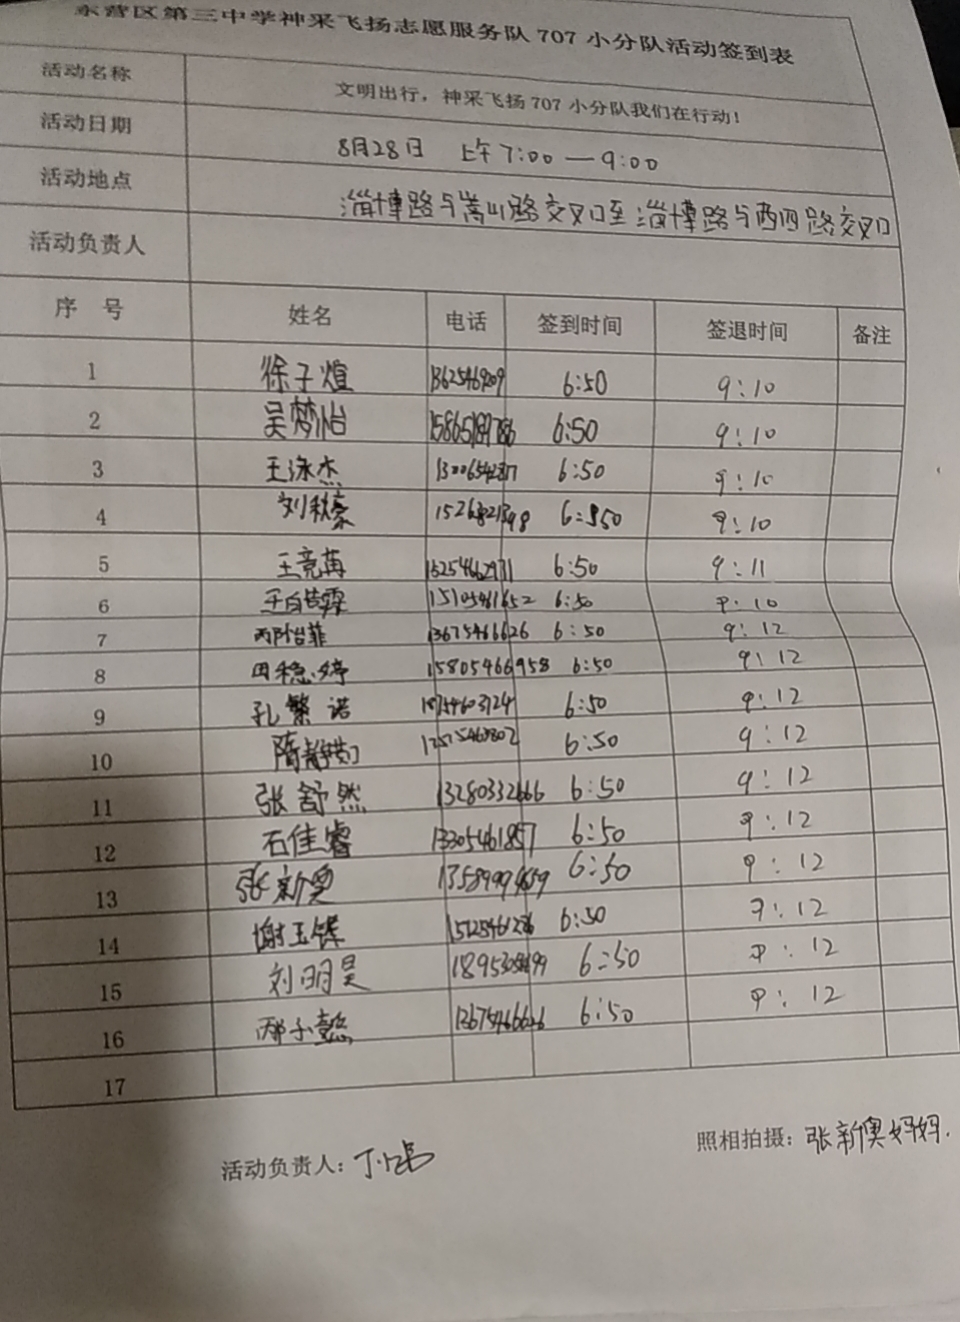 东营区第三中学神采飞扬志愿服务队707小分队活动签到表
活动名称 文明出行，神采飞扬707小分队我们在行动！
活动日期 8月28日 上午7:00—9:00
活动地点 淄博路与嵩山路交叉口至淄博路与西四路交叉口
活动负责人
序 号 姓名 电话 签到时间 签退时间 备注
1 徐子煊 6:50 9:10
2 吴梦怡 6:50 9:10
3 王泳杰 6:50 9:10
4 刘秋豪 9:10
5 王竞苒 6:50 9:11
6 6:50 9:10
7 邴怡菲 13675466626 6:50 9:12
8 田稳婷 15805466958 6:50 9:12
9 孔繁诺 6:50 9:12
10 隋静雯 6:50 9:12
11 张舒然 13280332666 6:50 9:12
12 石佳睿 13305461857 6:50 9:12
13 张新奥 6:50 9:12
14 谢玉铎 6:50 9:12
15 刘明昊 6:50 9:12
16 邴子懿 13675466626 6:50 9:12
17
活动负责人：
照相拍摄：张新奥妈妈.